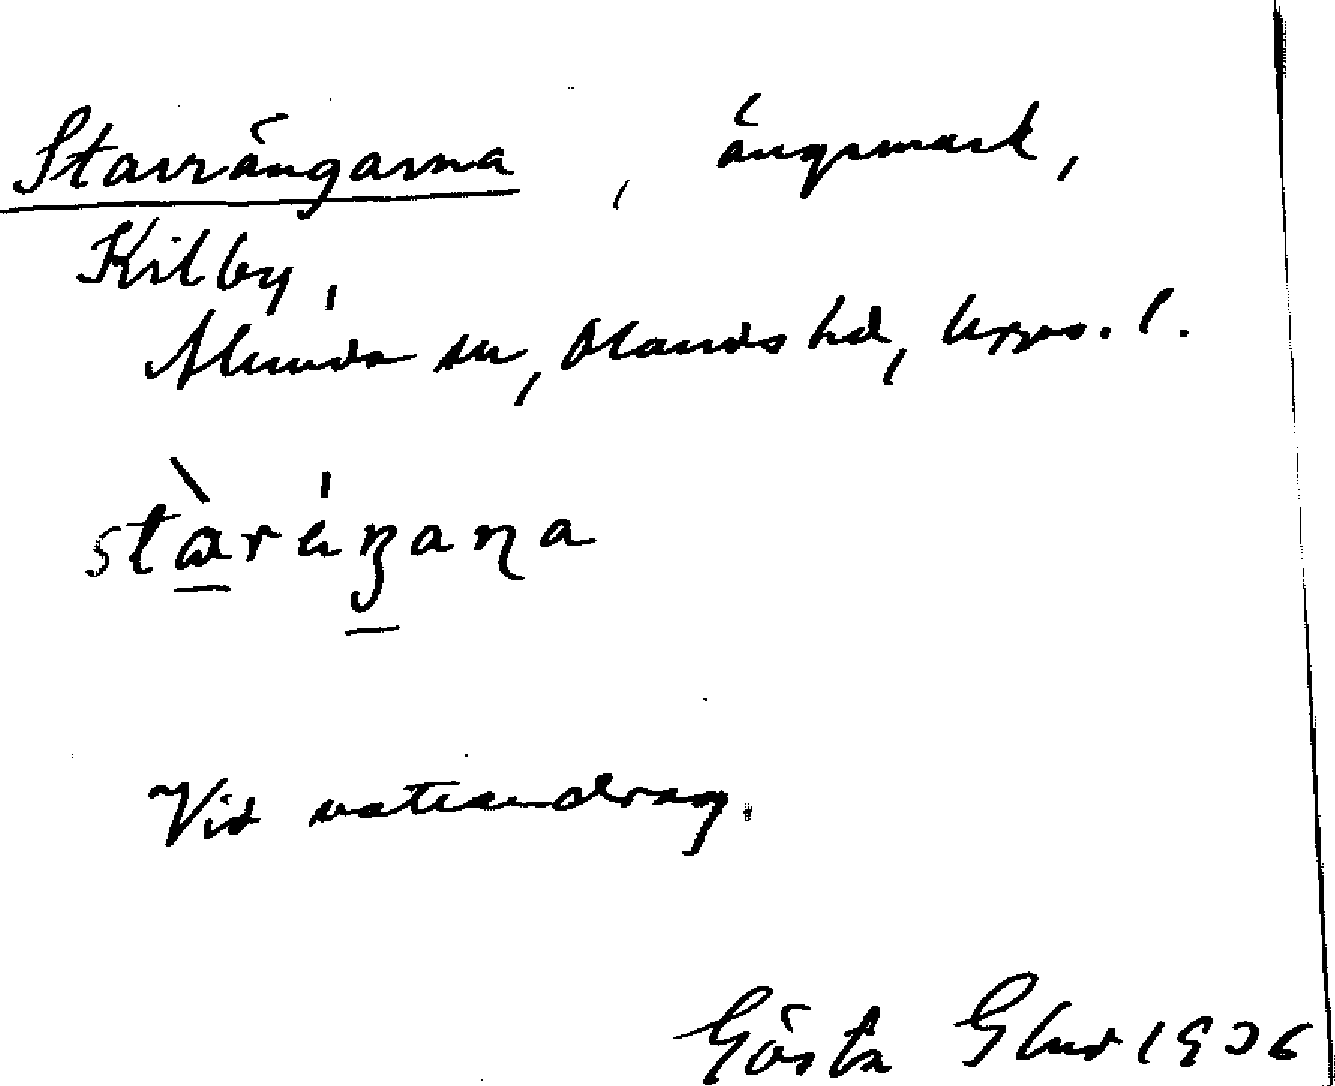 Starrängarna, ängsmark,
Kilby,
Alunda sn, Olands hd, Upps. l.
stàräŋana
Vid vattendrag.
Gösta 1936